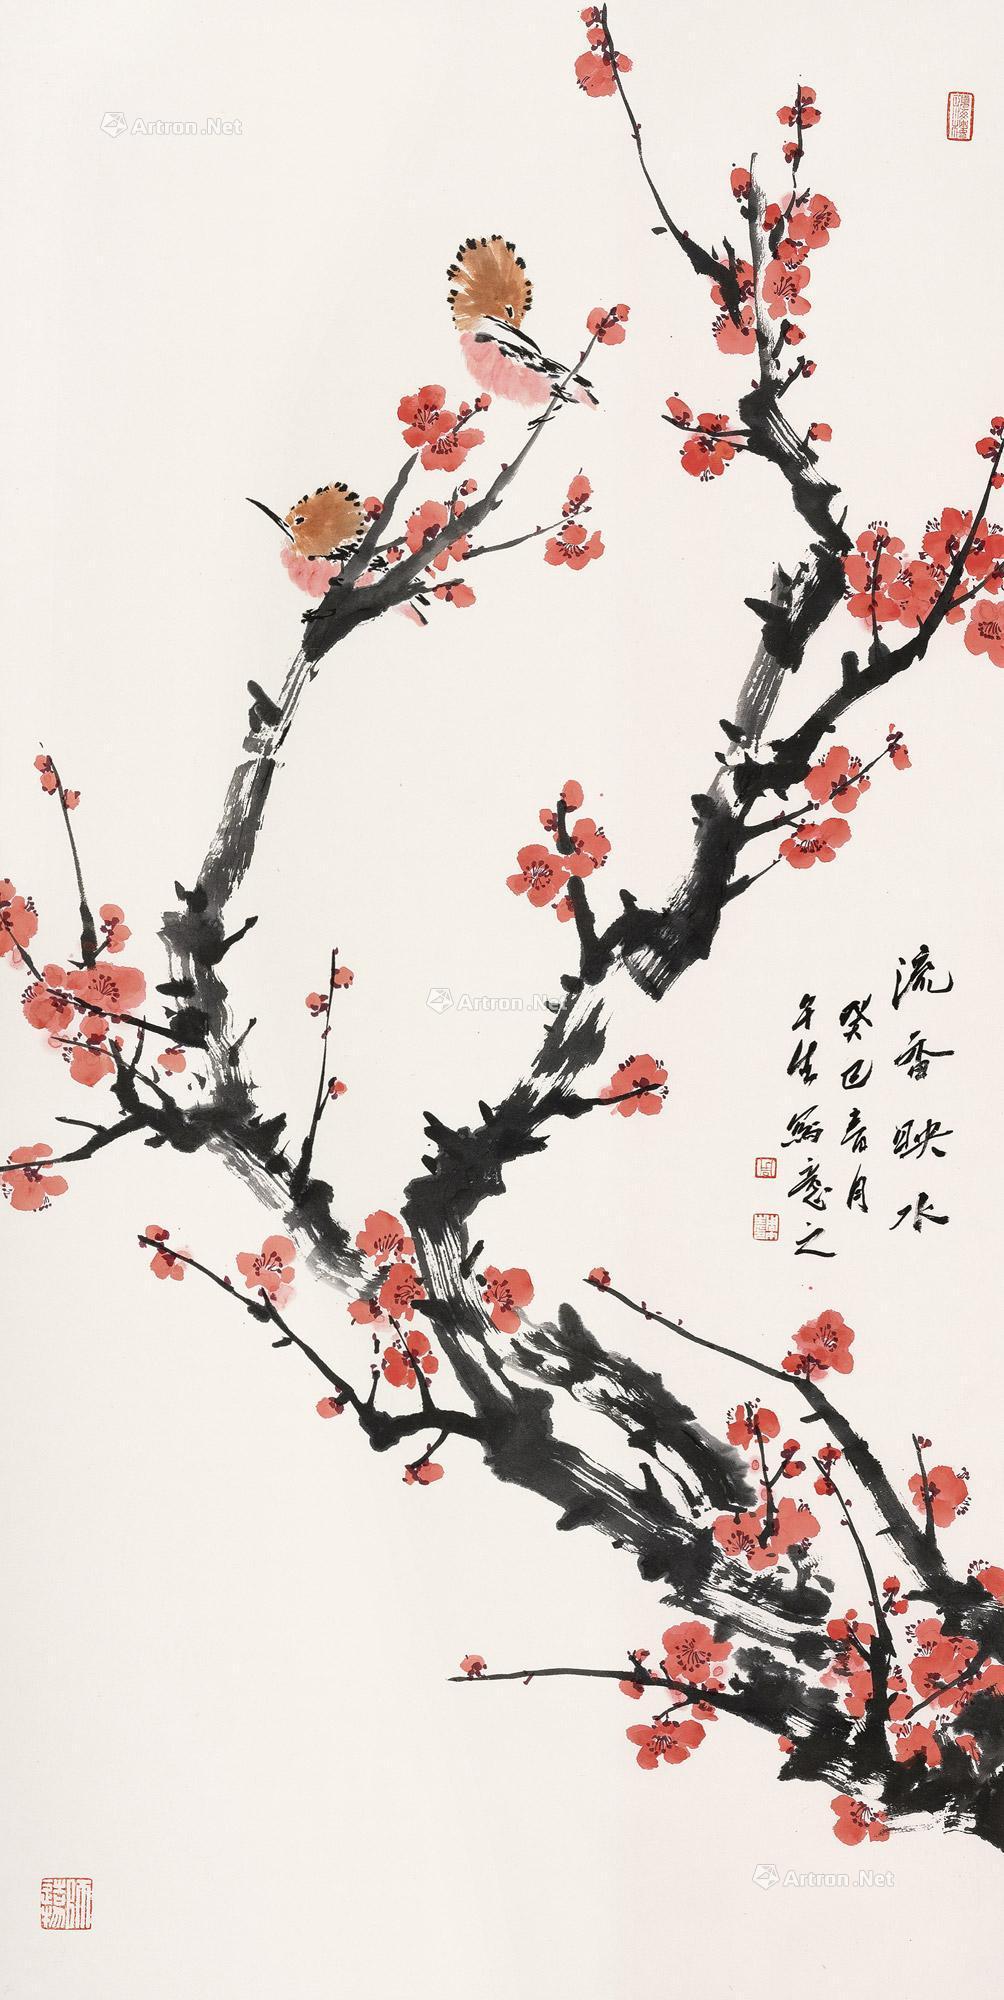 流香映水
癸巳春月
午生写意之
师造物
Artron.Net
Artron.Net
Artron.Net